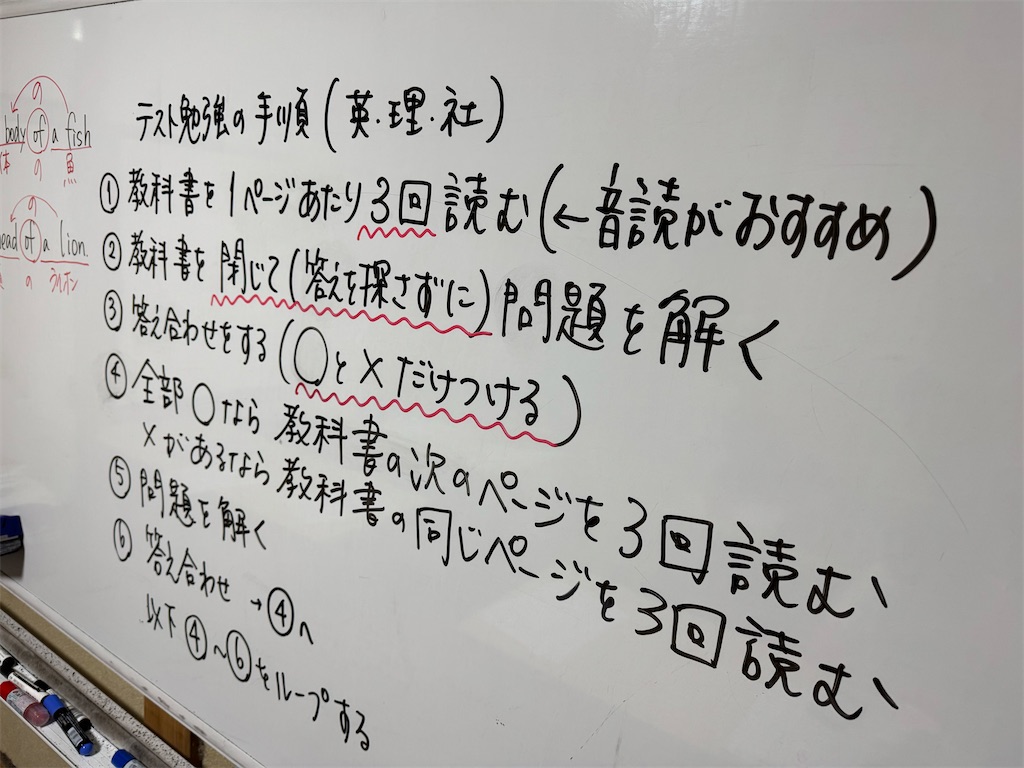 の
body of a fish
体 の 魚
の
ead of a lion.
の ライオン
テスト勉強の手順(英・理・社)
①教科書を1ページあたり3回読む(←音読がおすすめ)
②教科書を閉じて(答えを探さずに)問題を解く
③答え合わせをする(○と×だけつける)
④全部○なら教科書の次のページを3回読む、
×があるなら教科書の同じページを3回読む、
⑤問題を解く
⑥答え合わせ→④へ
以下④~⑥をループする